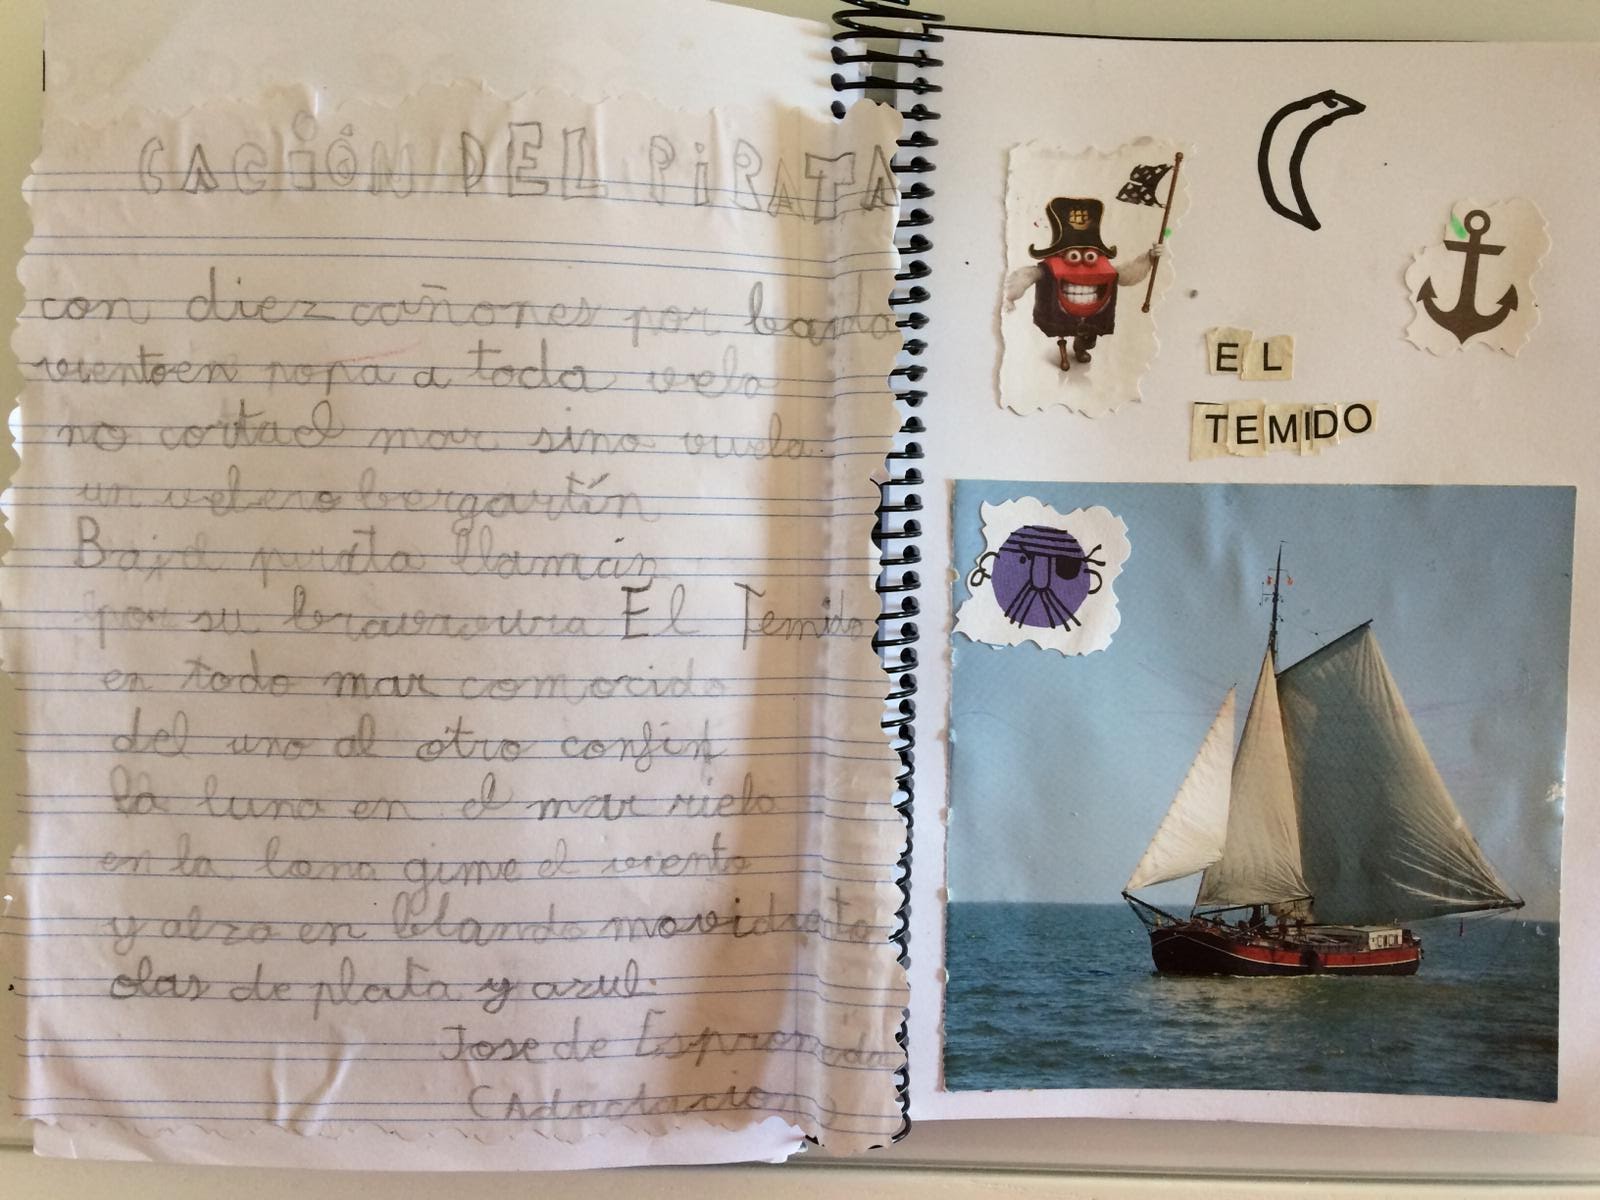 CACIÓN DEL PIRATA
con diez cañones por banda
viento en popa a toda vela
no corta el mar sino vuela
un velero bergartín
Bajel pirata llaman
por su bravura El Temido
en todo mar comocido
del uno al otro confin
la luna en el mar riela
en la lona gime el viento
y alza en blando movidento
olas de plata y azul.
Jose de Espronceda
(Adactación)
EL
TEMIDO